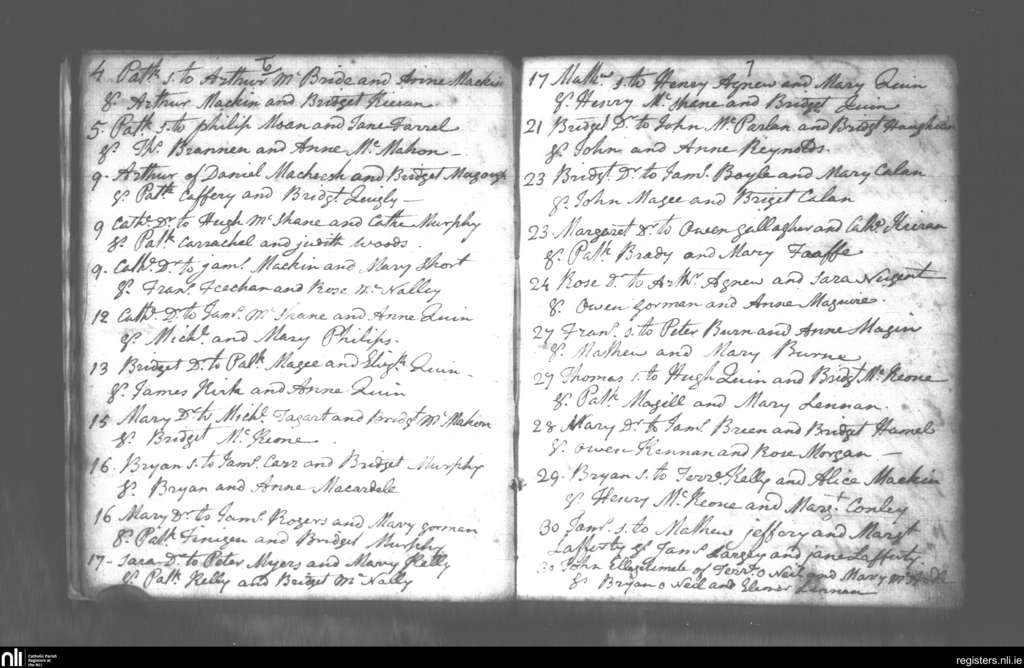 6
4 Patk. s. to Arthur Mc Bride and Anne Mackin
gs. Arthur Mackin and Bridget Kieran
5. Patk. s. to philip Moan and Jane Farrel
gs. Ths. Brannen and Anne Mc Mahon –
9. Arthur of Daniel and Bridget
gs. Patk. Caffery and Bridgt. Quigly –
9 Cathe. Dr. to Hugh Mc Shane and Cathe. Murphy
gs. Patk. Carrachel and judith woods.
9. Cathe. Dr. to jams. Mackin and Mary Short
gs. Frans. Feechan and Rose Mc Nalley
12 Cathe. Dr. to Jams. Mc Shane and Anne Quin
gs. Michl. and Mary Philips.
13 Bridget Dr. to Patk. Magee and Elizth. Quin.
gs. James Kirk and Anne Quin
15 Mary Dr. to Michl. Tagart and Bridgt. Mc Mahon
gs. Bridget Mc Keone.
16. Bryan s. to Jams. Carr and Bridget Murphy
gs. Bryan and Anne Macardele
16 Mary Dr. to Jams. Rogers and Mary gorman
gs. Patk. Finigen and Bridget Murphy
17 – Sara Dr. to Peter Myers and Mary Kelly
gs. Patk. Kelly and Bridget Mc Nally
7
17 Mathw. s. to Henry Agnew and Mary Quin
gs. Henry Mc Shane and Bridget Quin
21 Bridget Dr. to John Mc Parlan and Bridgt.
gs. John and Anne Reynolds.
23 Bridgt. Dr. to Jams. Boyle and Mary Calan
gs. John Magee and Briget Calan
23. Margaret Dr. to Owen gallagher and Cathe. Kieran
gs. Patk. Brady and Mary Taaffe
24 Rose Dr. to Arthr. Agnew and Sara Nugent
gs. Owen gorman and Anne Maguire.
27 Frans. s. to Peter Burn and Anne Magin
gs. Mathew and Mary Burne
27 Thomas s. to Hugh Quin and Bridgt. Mc Keone
gs. Patk. Magill and Mary Lennan.
28 Mary Dr. to Jams. Breen and Bridget Hamel
gs. Owen Kennan and Rose Morgan. –
29. Bryan s. to Terre. Kelly and Alice Mackin
gs. Henry Mc Keone and Margt. Conley
30 Jams. s. to Mathew jeffory and Margt.
Lafferty gs. Jams. Largey and jane Lafferty
30 John of Terre. o Neil and Mary
gs. Bryan o Neil and Elenor Lennan
nli
Catholic Parish
Registers at
the NLI
registers.nli.ie